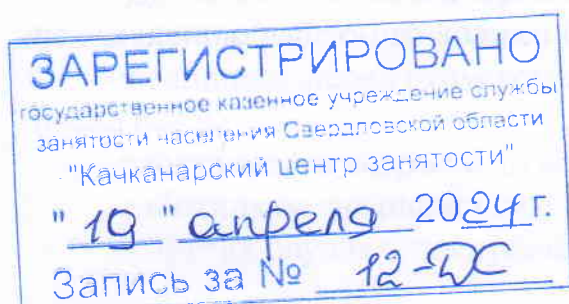 ЗАРЕГИСТРИРОВАНО
государственное казенное учреждение службы
занятости населения Свердловской области
"Качканарский центр занятости"
"19" апреля 2024 г.
Запись за № 12-ДС